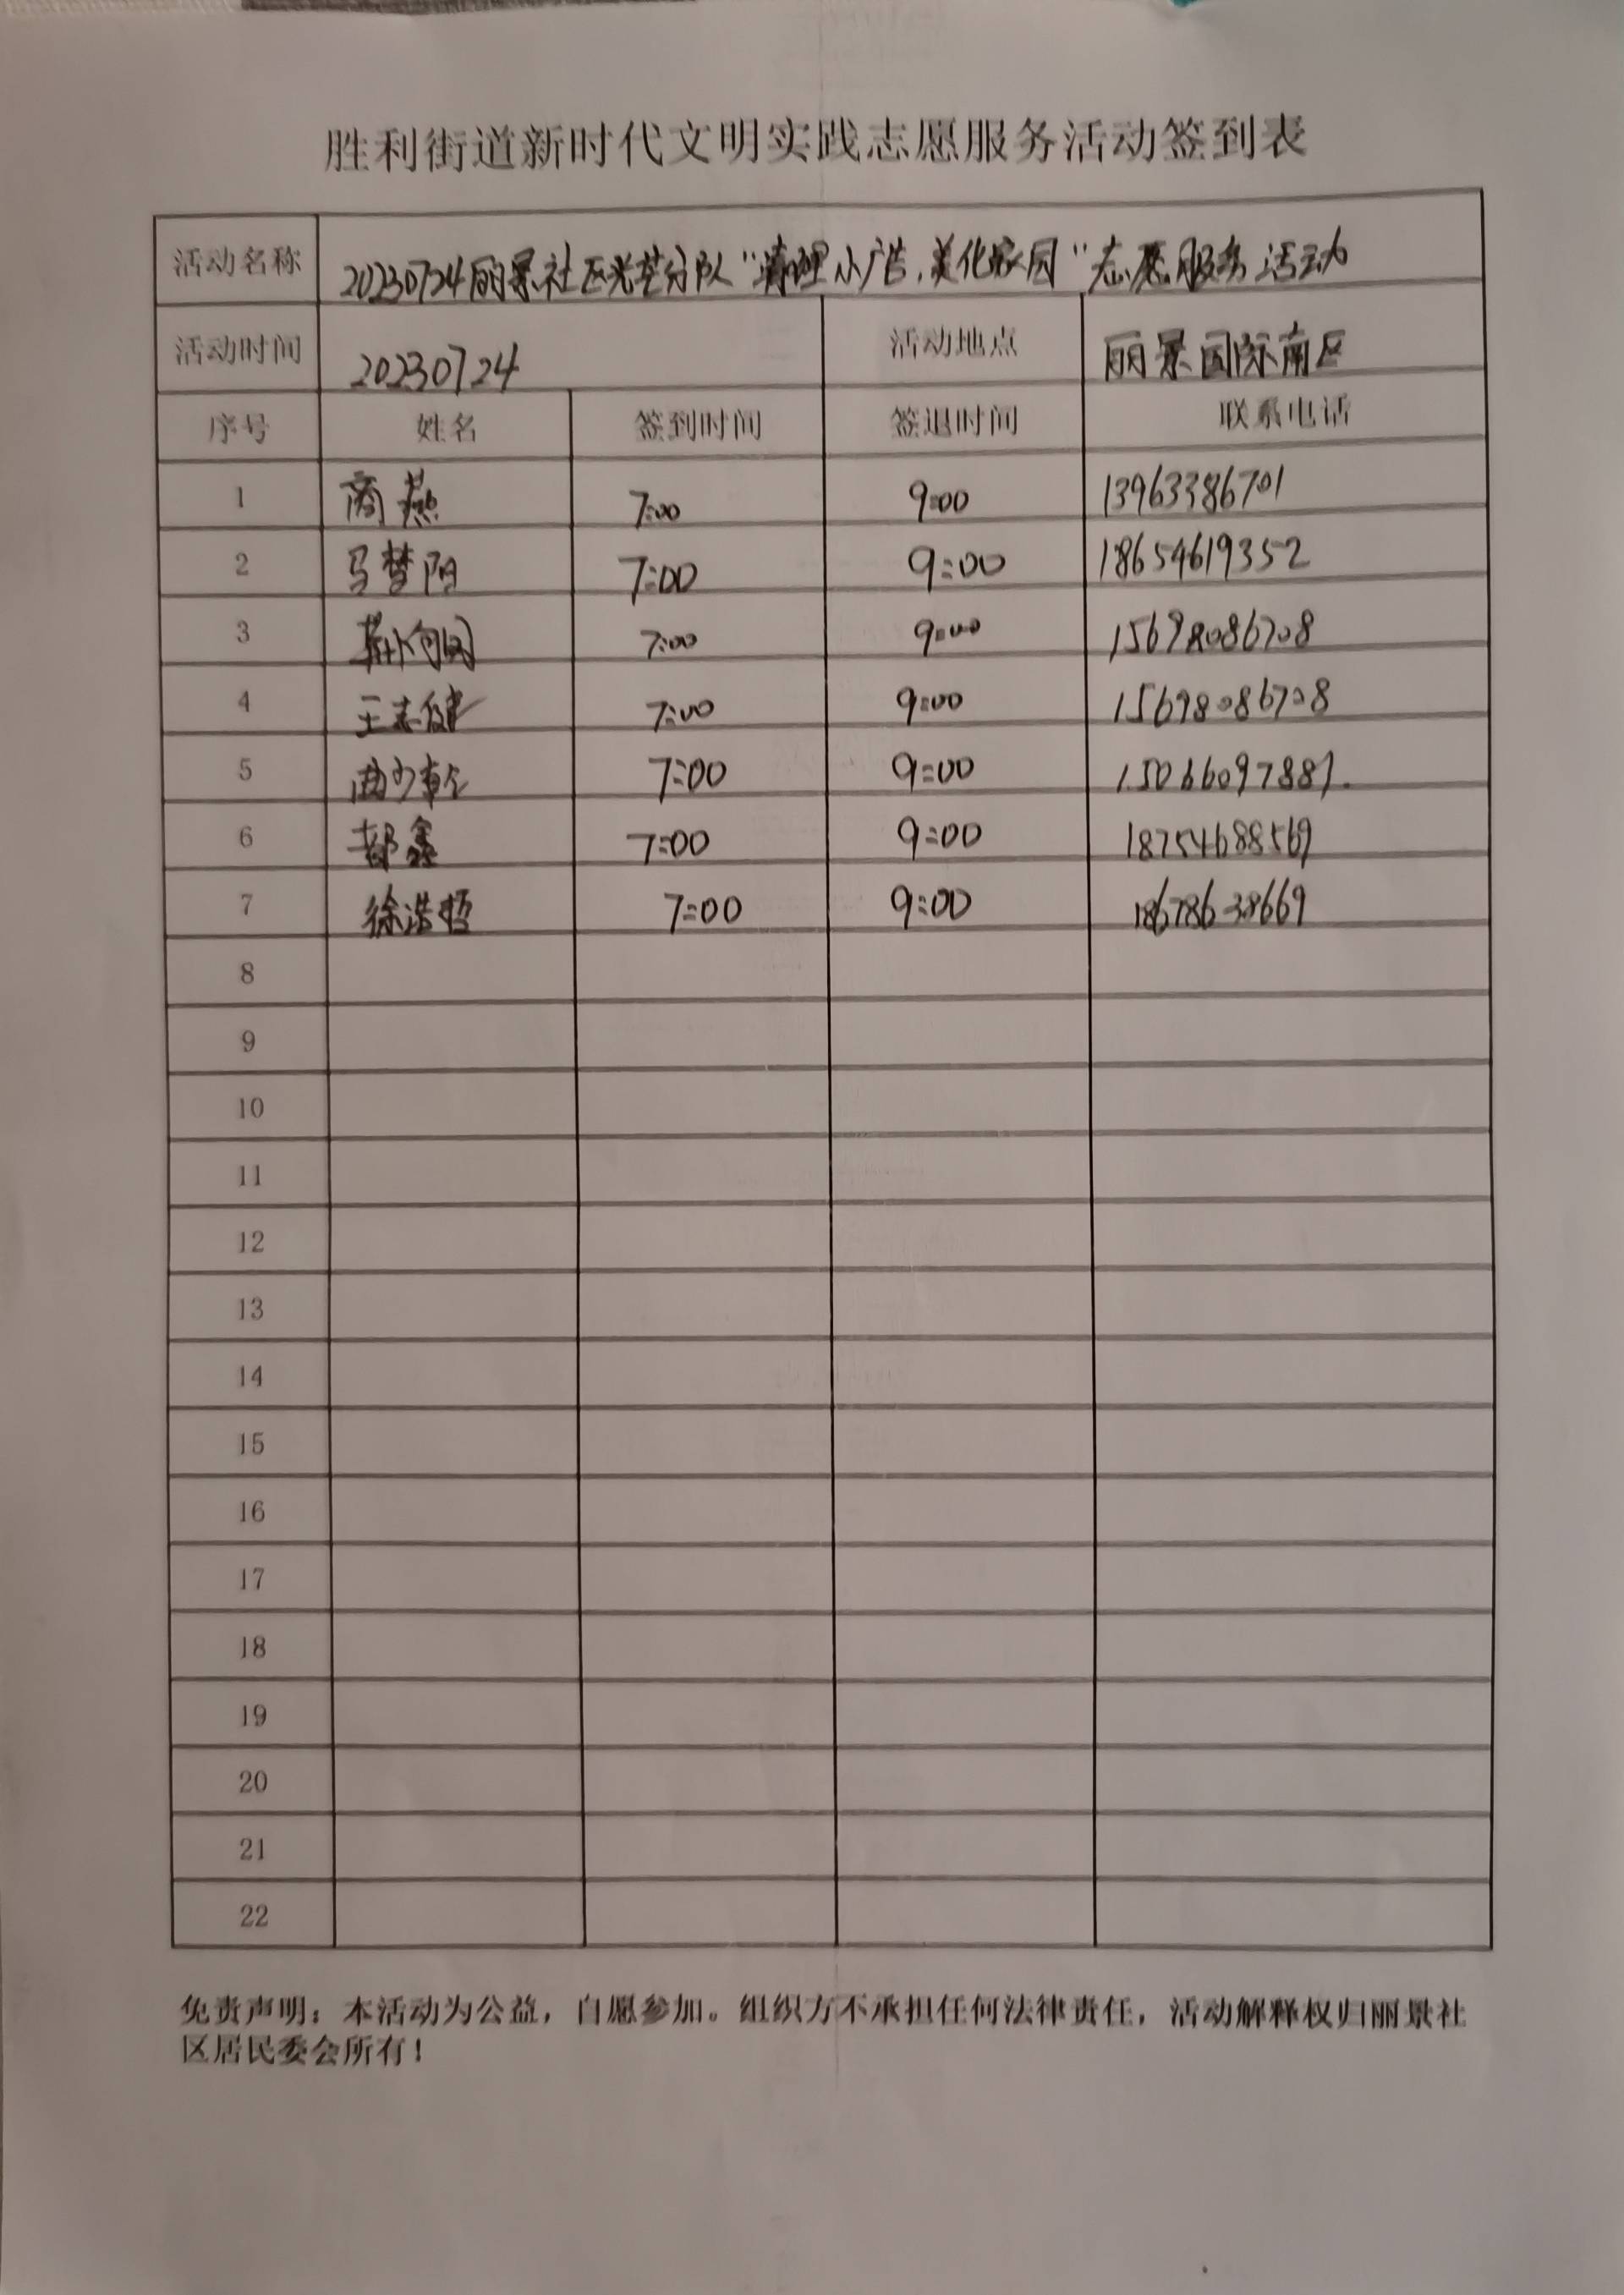 胜利街道新时代文明实践志愿服务活动签到表
活动名称 20230724丽景社区光芒分队“清理小广告,美化家园”志愿服务活动
活动时间 20230724 活动地点 丽景国际南区
序号 姓名 签到时间 签退时间 联系电话
1 商燕 7:00 9:00 13963386701
2 马梦阳 7:00 9:00 18654619352
3 7:00 9:00 15698086708
4 王志健 7:00 9:00 15698086708
5 曲少乾 7:00 9:00 15066097881.
6 郝鑫 7:00 9:00 18754688569
7 徐浩哲 7:00 9:00 18678638669
8
9
10
11
12
13
14
15
16
17
18
19
20
21
22
免责声明：本活动为公益，自愿参加。组织方不承担任何法律责任，活动解释权归丽景社
区居民委会所有！